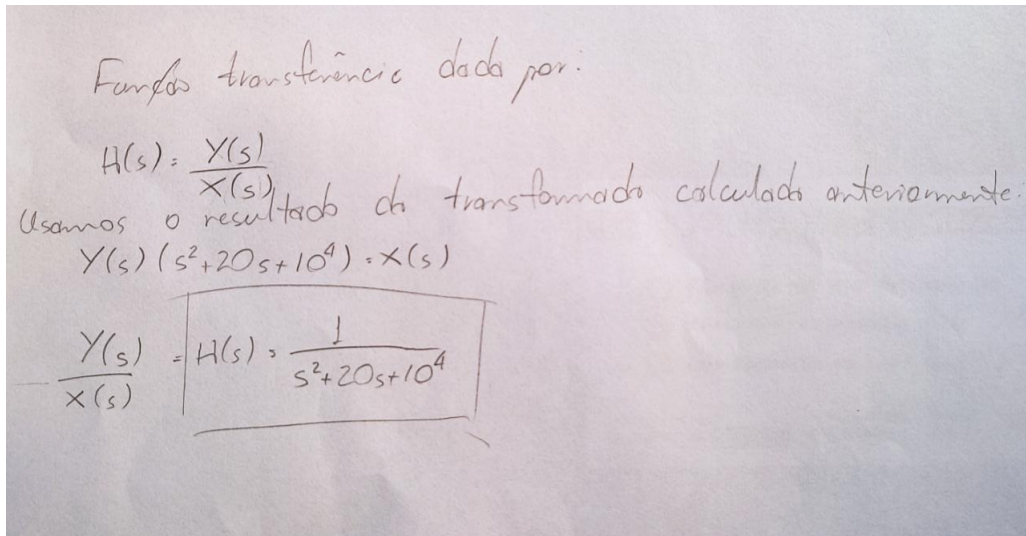 Função transferência dada por:
H(s) = Y(s)/X(s)
Usamos o resultado da transformada calculada anteriormente.
Y(s) (s²+20s+10⁴) = X(s)
Y(s)/X(s) = H(s) = 1/(s²+20s+10⁴)